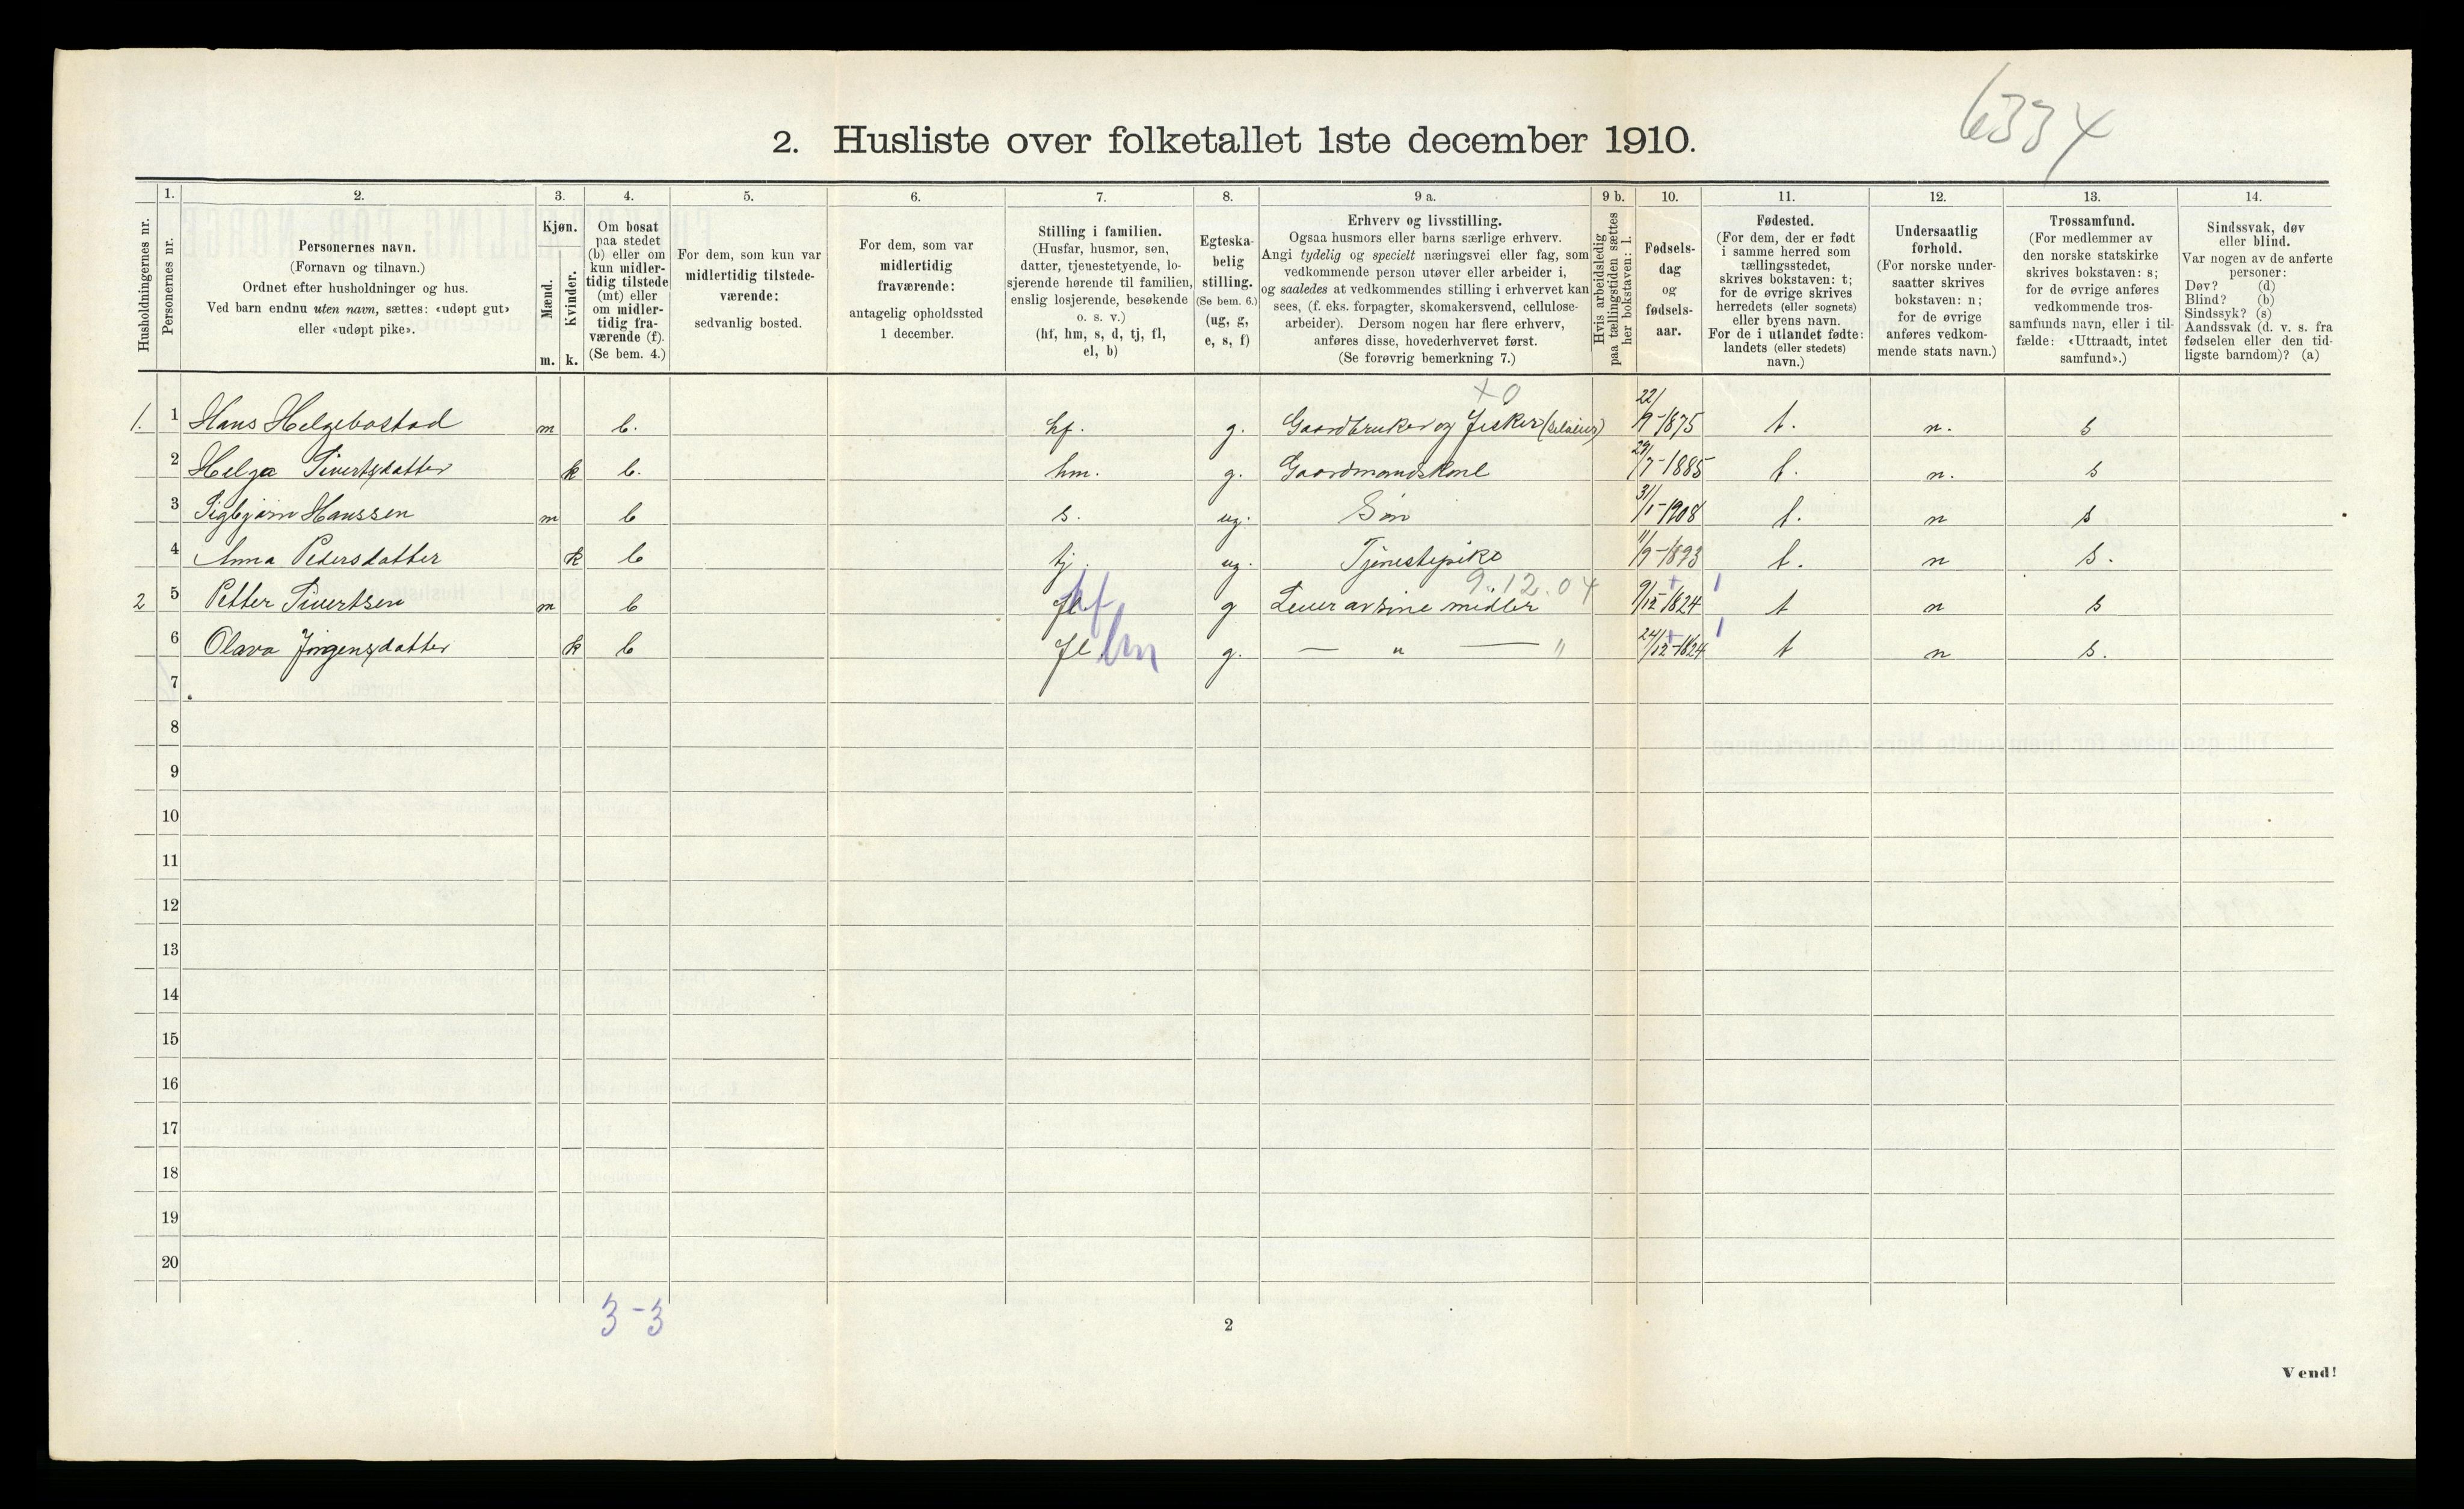 6334
2. Husliste over folketallet 1ste december 1910.
Husholdningernes nr.
1.
Personernes nr.
2.
Personernes navn.
(Fornavn og tilnavn.)
Ordnet efter husholdninger og hus.
Ved barn endnu uten navn, sættes: «udøpt gut»
eller «udøpt pike».
3.
Kjøn.
Mænd.
Kvinder.
m. k.
4.
Om bosat
paa stedet
(b) eller om
kun midler-
tidig tilstede
(mt) eller
om midler-
tidig fra-
værende (f).
(Se bem. 4.)
5.
For dem, som kun var
midlertidig tilstede-
værende:
sedvanlig bosted.
6.
For dem, som var
midlertidig
fraværende:
antagelig opholdssted
1 december.
7.
Stilling i familien.
(Husfar, husmor, søn,
datter, tjenestetyende, lo-
sjerende hørende til familien,
enslig losjerende, besøkende
o. s. v.)
(hf, hm, s, d, tj, fl,
el, b)
8.
Egteska-
belig
stilling.
(Se bem. 6.)
(ug, g,
e, s, f)
9 a.
Erhverv og livsstilling.
Ogsaa husmors eller barns særlige erhverv.
Angi tydelig og specielt næringsvei eller fag, som
vedkommende person utøver eller arbeider i,
og saaledes at vedkommendes stilling i erhvervet kan
sees, (f. eks. forpagter, skomakersvend, cellulose-
arbeider). Dersom nogen har flere erhverv,
anføres disse, hovederhvervet først.
(Se forøvrig bemerkning 7.)
9 b.
Hvis arbeidsledig
paa tællingstiden sættes
her bokstaven: l.
10.
Fødsels-
dag
og
fødsels-
aar.
11.
Fødested.
(For dem, der er født
i samme herred som
tællingsstedet,
skrives bokstaven: t;
for de øvrige skrives
herredets (eller sognets)
eller byens navn.
For de i utlandet fødte:
landets (eller stedets)
navn.)
12.
Undersaatlig
forhold.
(For norske under-
saatter skrives
bokstaven: n;
for de øvrige
anføres vedkom-
mende stats navn.)
13.
Trossamfund.
(For medlemmer av
den norske statskirke
skrives bokstaven: s;
for de øvrige anføres
vedkommende tros-
samfunds navn, eller i til-
fælde: «Uttraadt, intet
samfund».)
14.
Sindssvak, døv
eller blind.
Var nogen av de anførte
personer:
Døv? (d)
Blind? (b)
Sindssyk? (s)
Aandssvak (d. v. s. fra
fødselen eller den tid-
ligste barndom)? (a)
x0
1. 1 Hans Helgebostad m b. hf. g. Gaardbruker og Fisker (selveier) 22/9-1875 t. n. s
2 Helga Sivertsdatter k b. hm. g. Gaardmandskone 29/7-1885 t. n. s
3 Sigbjørn Hanssen m b s. ug. Søn 31/1-1908 t. n s
4 Anna Pedersdatter k b tj. ug. Tjenestepike 11/9-1893 t. n s.
9.12.04
2 5 Petter Sivertsen m b fl hf g Lever av sine midler 9/12-1824 t n s
6 Olava Jørgensdatter k b fl. hm g. — " — " 24/12-1824 t n s.
7
8
9
10
11
12
13
14
15
16
17
18
19
20
3-3
2
Vend!